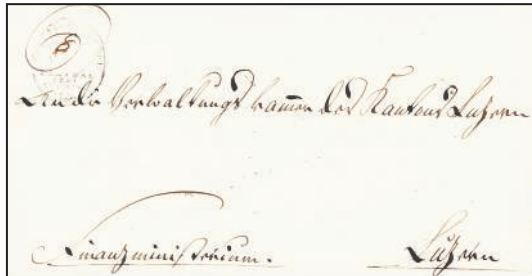 An die Verwaltungs kammer des Kantons Luzern
Finanzministerium. Luzern